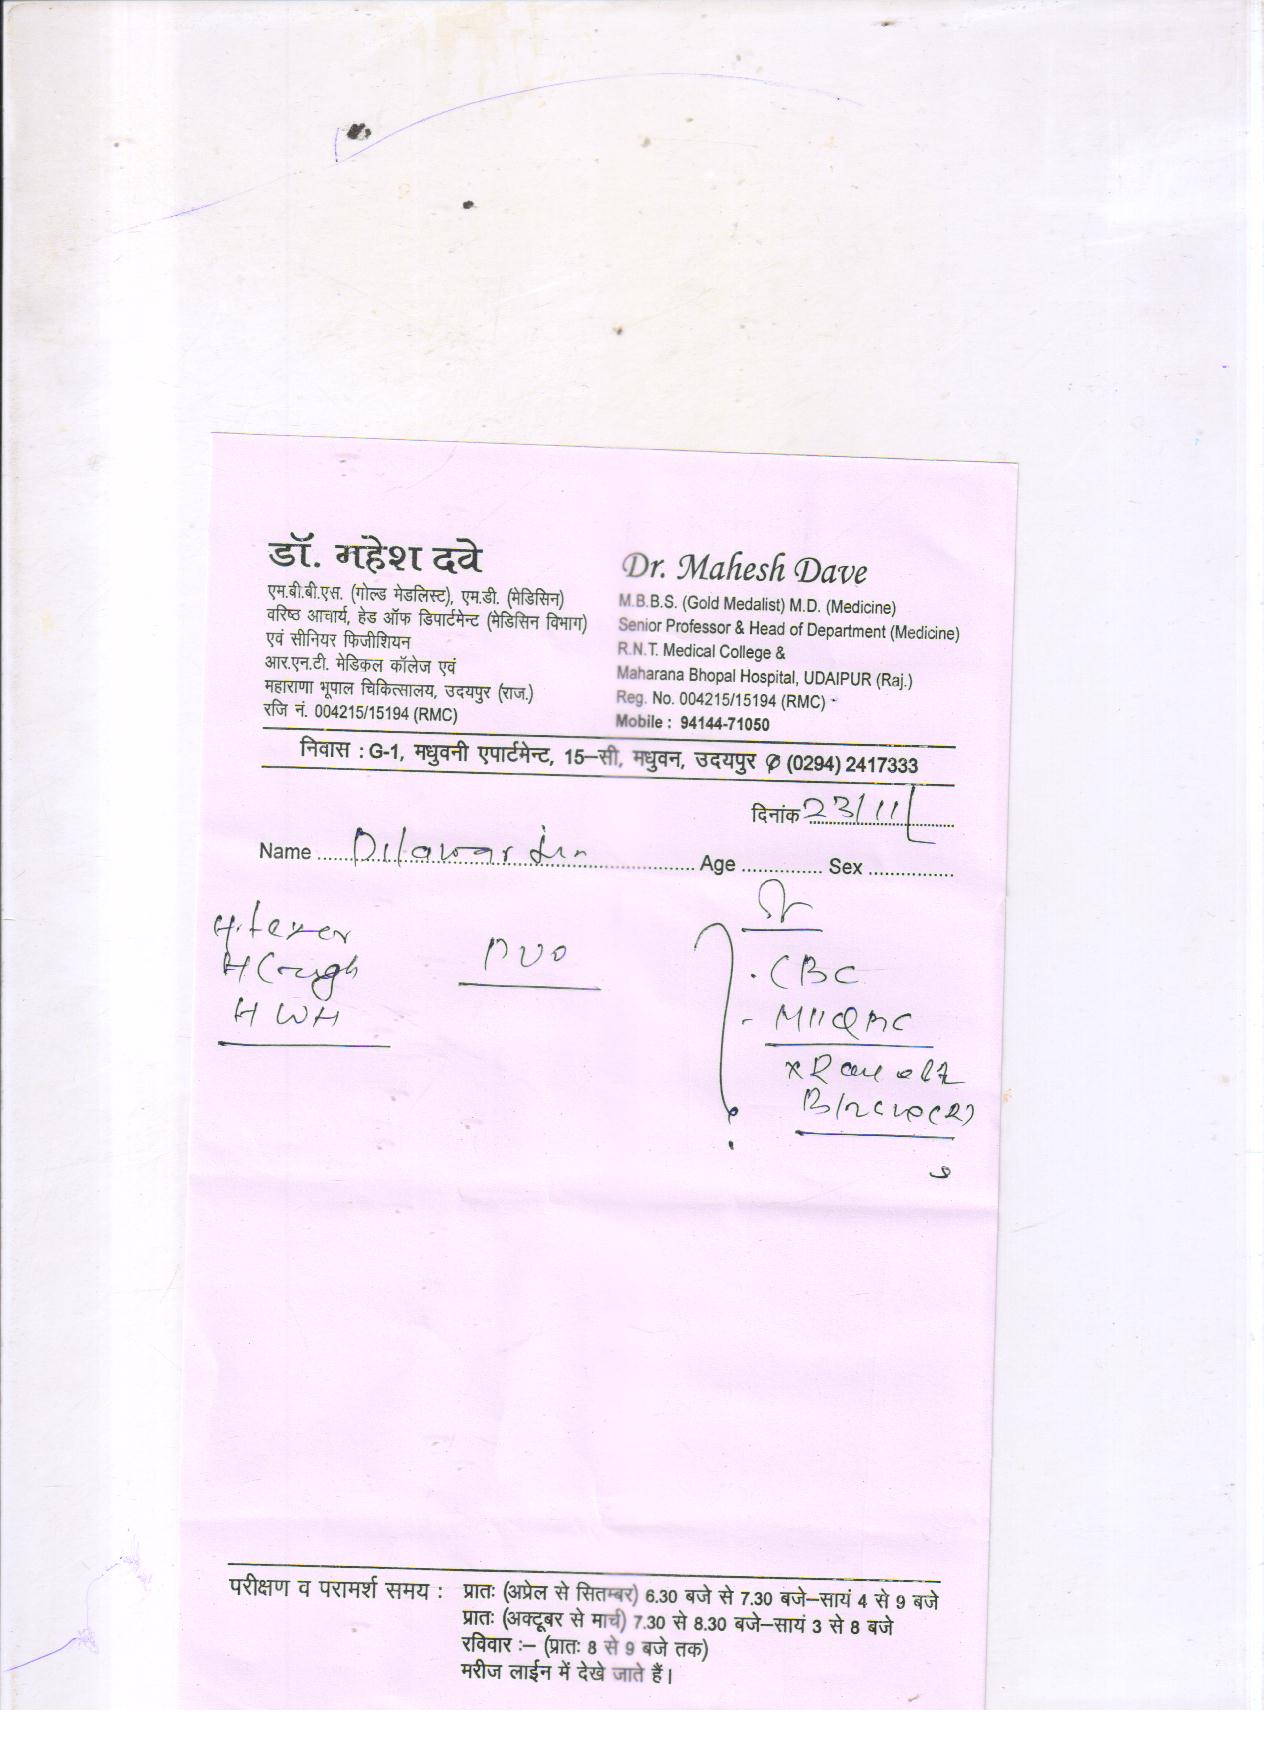 डॉ. महेश दवे
एम.बी.बी.एस. (गोल्ड मेडलिस्ट), एम.डी. (मेडिसिन)
वरिष्ठ आचार्य, हेड ऑफ डिपार्टमेन्ट (मेडिसिन विभाग)
एवं सीनियर फिजीशियन
आर.एन.टी. मेडिकल कॉलेज एवं
महाराणा भूपाल चिकित्सालय, उदयपुर (राज.)
रजि नं. 004215/15194 (RMC)
Dr. Mahesh Dave
M.B.B.S. (Gold Medalist) M.D. (Medicine)
Senior Professor & Head of Department (Medicine)
R.N.T. Medical College &
Maharana Bhopal Hospital, UDAIPUR (Raj.)
Reg. No. 004215/15194 (RMC)
Mobile : 94144-71050
निवास : G-1, मधुवनी एपार्टमेन्ट, 15–सी, मधुवन, उदयपुर ✆ (0294) 2417333
दिनांक 23/11/
Name Dilawar Age Sex
H. fever
H Cough
H
PUO
CBC
परीक्षण व परामर्श समय : प्रातः (अप्रेल से सितम्बर) 6.30 बजे से 7.30 बजे–सायं 4 से 9 बजे
प्रातः (अक्टूबर से मार्च) 7.30 से 8.30 बजे–सायं 3 से 8 बजे
रविवार :– (प्रातः 8 से 9 बजे तक)
मरीज लाईन में देखे जाते हैं।